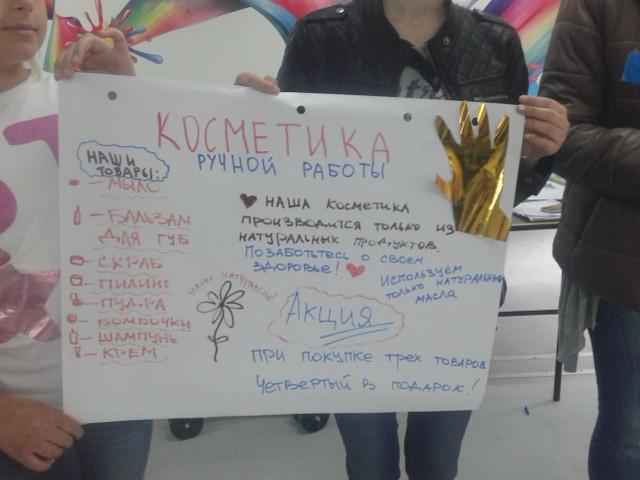 КОСМЕТИКА
РУЧНОЙ РАБОТЫ
НАШИ
ТОВАРЫ:
– МЫЛО
– БАЛЬЗАМ
ДЛЯ ГУБ
– СКРАБ
– ПИЛИНГ
– ПУДРА
– БОМБОЧКИ
– ШАМПУНЬ
– КРЕМ
НАША КОСМЕТИКА
ПРОИЗВОДИТСЯ ТОЛЬКО ИЗ
НАТУРАЛЬНЫХ ПРОДУКТОВ.
ПОЗАБОТЬТЕСЬ О СВОЕМ
ЗДОРОВЬЕ!
ИСПОЛЬЗУЕМ
ТОЛЬКО НАТУРАЛЬНЫЕ
МАСЛА
АКЦИЯ
ПРИ ПОКУПКЕ ТРЕХ ТОВАРОВ
ЧЕТВЕРТЫЙ В ПОДАРОК!